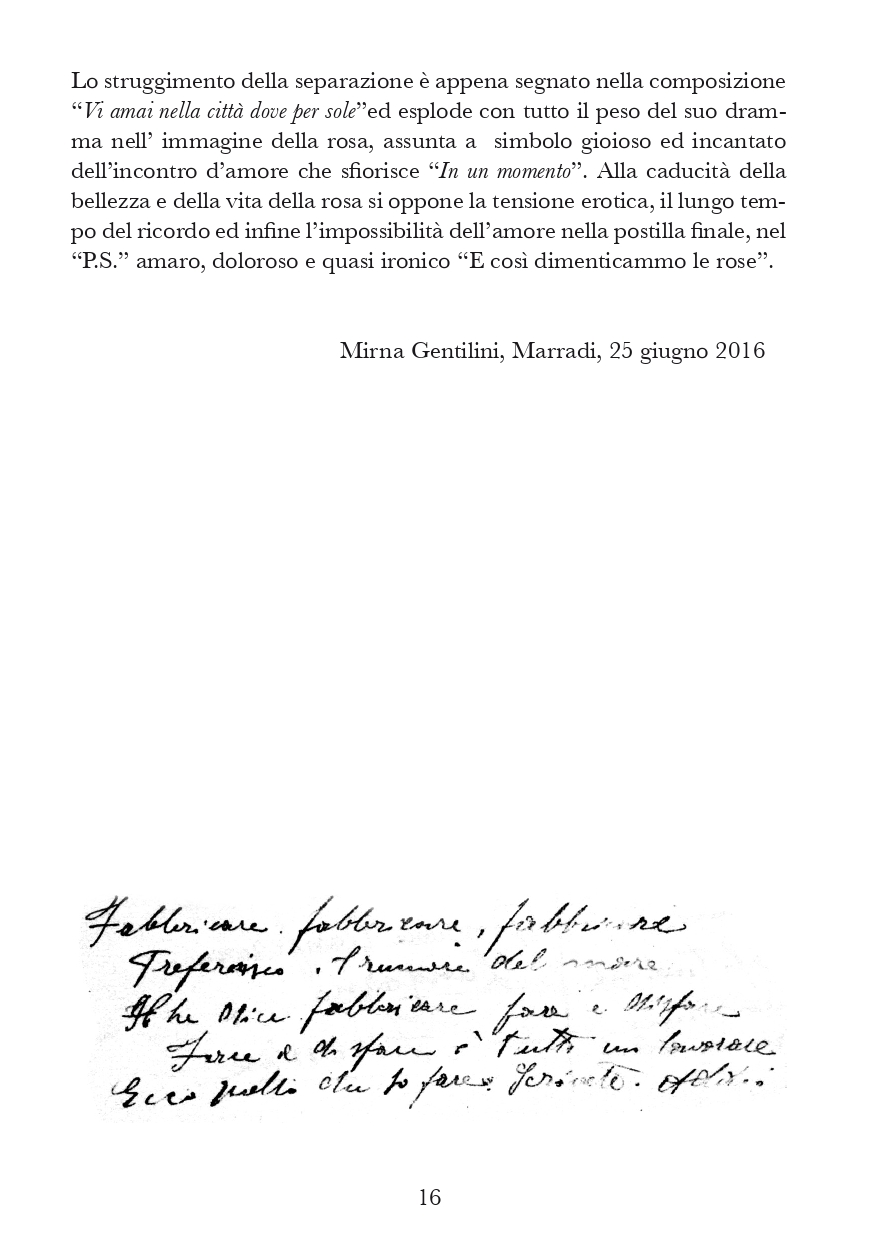 Lo struggimento della separazione è appena segnato nella composizione
“Vi amai nella città dove per sole”ed esplode con tutto il peso del suo dram-
ma nell’ immagine della rosa, assunta a  simbolo gioioso ed incantato
dell’incontro d’amore che sfiorisce “In un momento”. Alla caducità della
bellezza e della vita della rosa si oppone la tensione erotica, il lungo tem-
po del ricordo ed infine l’impossibilità dell’amore nella postilla finale, nel
“P.S.” amaro, doloroso e quasi ironico “E così dimenticammo le rose”.
Mirna Gentilini, Marradi, 25 giugno 2016
Fabbricare, fabbricare, fabbricare
Preferisco il rumore del mare
Che dice fabbricare fare e disfare
Fare e disfare è tutto un lavorare
Ecco quello che so fare.
16